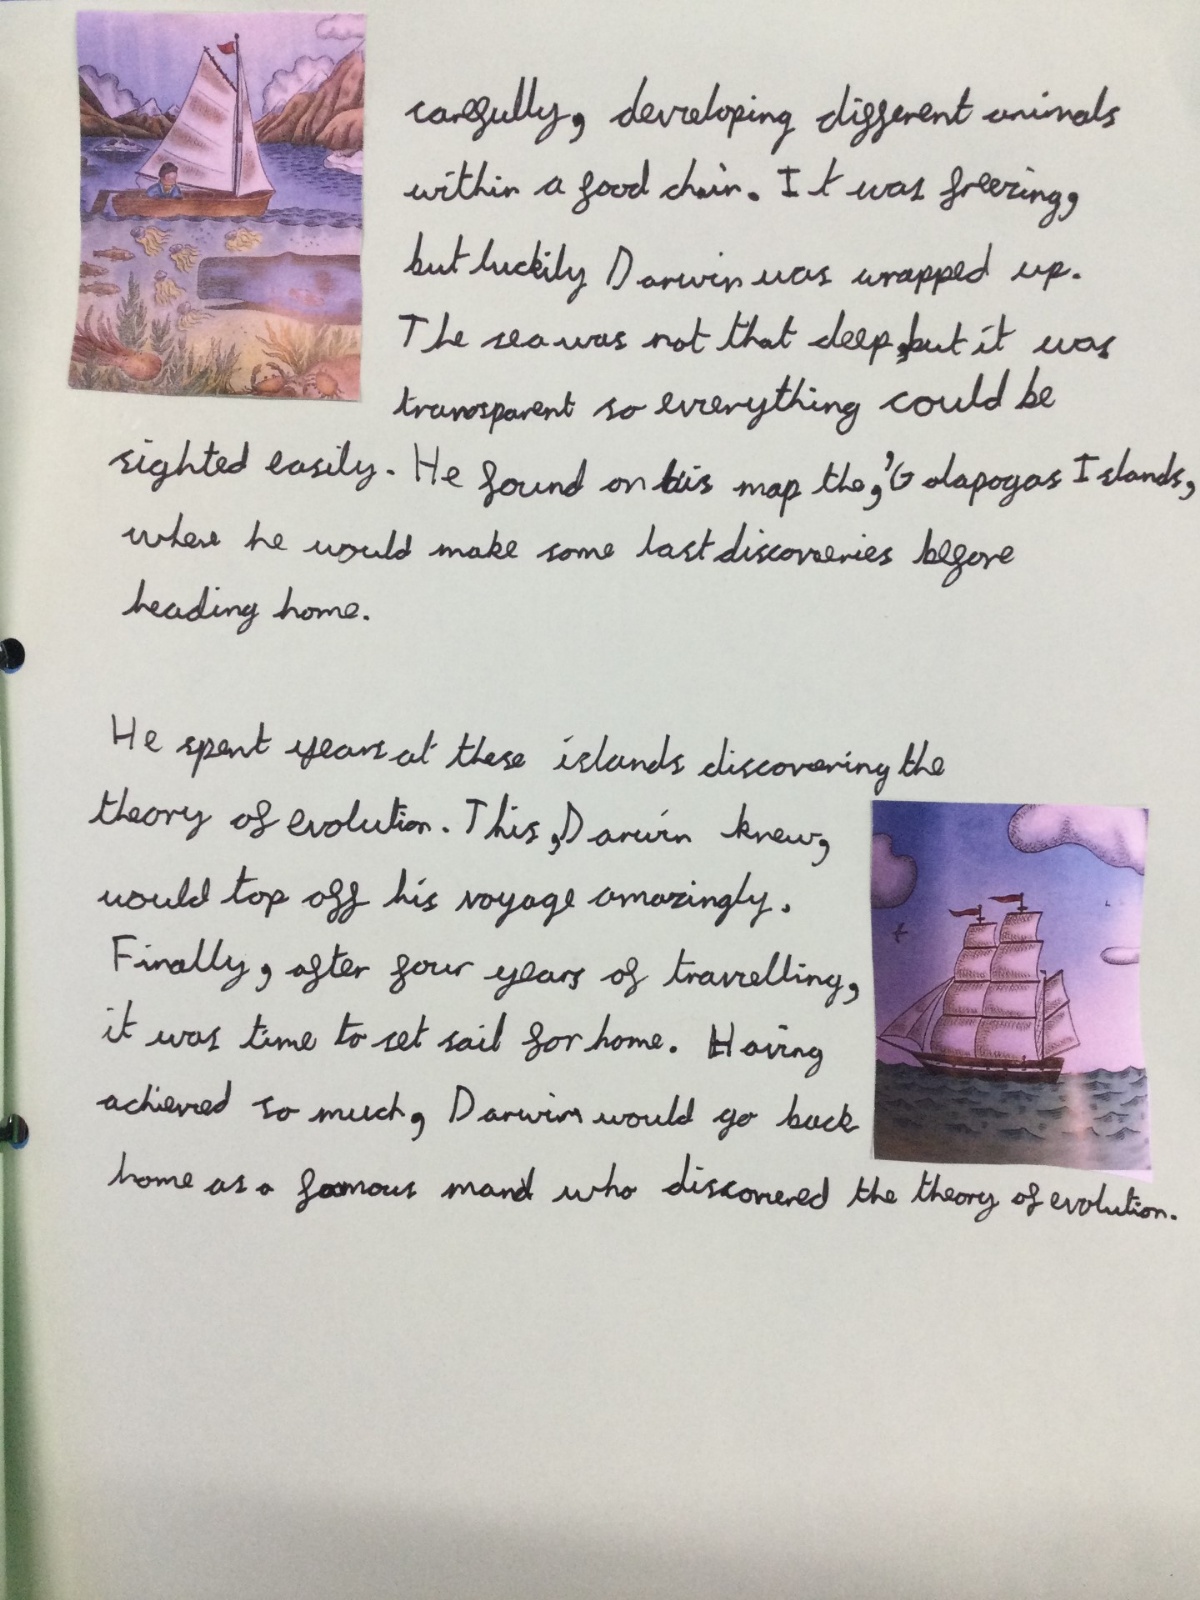 carefully, developing different animals
within a food chain. It was freezing,
but luckily Darwin was wrapped up.
The sea was not that deep, but it was
transparent so everything could be
sighted easily. He found on his map the, 'Galapogas Islands,
where he would make some last discoveries before
heading home.
He spent years at these islands discovering the
theory of evolution. This, Darwin knew,
would top off his voyage amazingly.
Finally, after four years of travelling,
it was time to set sail for home. Having
achieved so much, Darwin would go back
home as a famous man who discovered the theory of evolution.